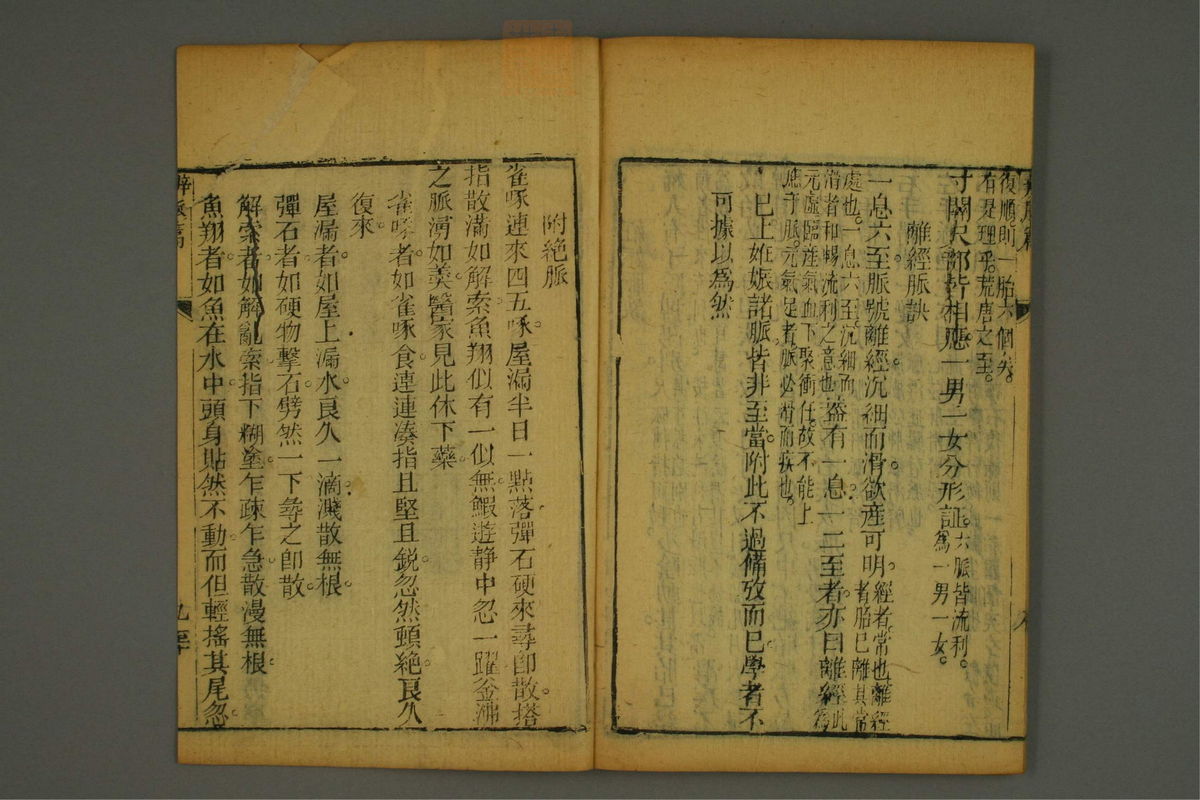 復順則一胎六個矣。
有是理乎。荒唐之至。
寸關尺部皆相應一男一女分形証。六脈皆流利。
為一男一女。
離經脈訣
一息六至脈號離經沉細而滑欲產可明。經者常也離經
者胎已離其常
處也。一息六至沉細而
滑者和暢流利之意也蓋有一息一二至者。亦曰離經此為
元虛臨産氣血下聚衝任故不能上
應于脈。元氣足者。脈必滑而疾也。
已上姙娠諸脈皆非至當。附此不過備攷而已。學者不
可據以為然
附絶脈
雀啄連來四五啄。屋漏半日一點落彈石硬來尋卽散。搭
指散滿如解索。魚翔似有一似無。鰕遊静中忽一躍。釡沸
之脈湧如羹。醫家見此休下藥
雀啄者。如雀啄食。連連湊指。且堅且鋭。忽然頓絶。良久
復來。
屋漏者。如屋上漏水。良久一滴。濺散無根。
彈石者如硬物擊石。劈然一下。尋之卽散。
解索者如解亂索。指下糊塗。乍疎乍急。散漫無根。
魚翔者。如魚在水中。頭身貼然不動。而但輕搖其尾。忽
辨脈篇